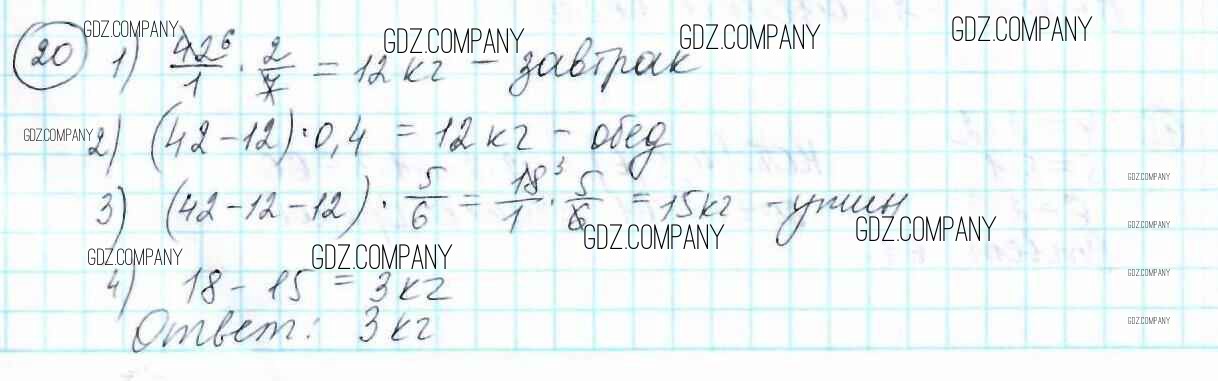 GDZ.COMPANY GDZ.COMPANY GDZ.COMPANY GDZ.COMPANY
20 1) 42⁶/1 · 2/7 = 12 кг – завтрак
GDZ.COMPANY
2) (42 – 12) · 0,4 = 12 кг – обед
GDZ.COMPANY
3) (42 – 12 – 12) · 5/6 = 18³/1 · 5/6 = 15 кг – ужин
GDZ.COMPANY GDZ.COMPANY GDZ.COMPANY GDZ.COMPANY GDZ.COMPANY
4) 18 – 15 = 3 кг
GDZ.COMPANY
Ответ: 3 кг
GDZ.COMPANY